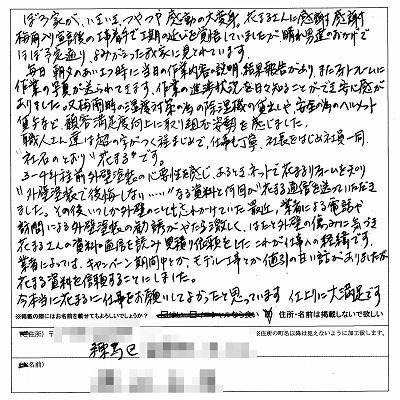 ぼろ家が、いまいま、ツヤツヤ 感動の大変身。花まるさんに感謝 感謝
梅雨入り宣言後の工事着手で工期の延びを覚悟していましたが 晴れ男達のおかげで
ほぼ予定通り よみがえった我家に見とれています。
毎日 朝夕のあいさつ時に当日の作業内容の説明、結果報告があり またフォトフレームに
作業の写真が送られてきます。作業の進捗状況を日々知ることができ安心感が
ありました。又梅雨時の湿度対策の為の除湿機の貸出しや 安全の為のヘルメット
貸与など 顧客満足度向上に取り組む姿勢を感じました。
職人さん達は超の字がつく程まじめで、仕事も丁寧、社長をはじめ社員一同
"社名のとおり" 花まる" です。
3〜4年程前外壁塗装の必要性を感じ、あるときネットで花まるリフォームを知り
"外壁塗装で後悔しない……" なる資料と何回か花まる通信を送っていただき
ました。その後いつしか外壁のことも忘れかけていた最近、業者による電話や
訪問による外壁塗装の勧誘がやたら激しく、ほたと外壁の傷みに気づき
花まるさんの資料や通信を読み 見積り依頼をしたこれが仕事への経緯です。
業者によっては、キャンペーン期間中とか、モデル工事とか値引の甘い話がありましたが
花まる資料を信頼することにしました。
今本当に花まるに仕事をお願いしてよかったと思っています 仕上りに大満足です
※掲載の際にはお名前を載せてもよろしいでしょうか? 住所・名前は掲載しないで欲しい
(ご住所) 〒 ※住所の町名以降は見えないように加工致します。
練馬区
(お名前)